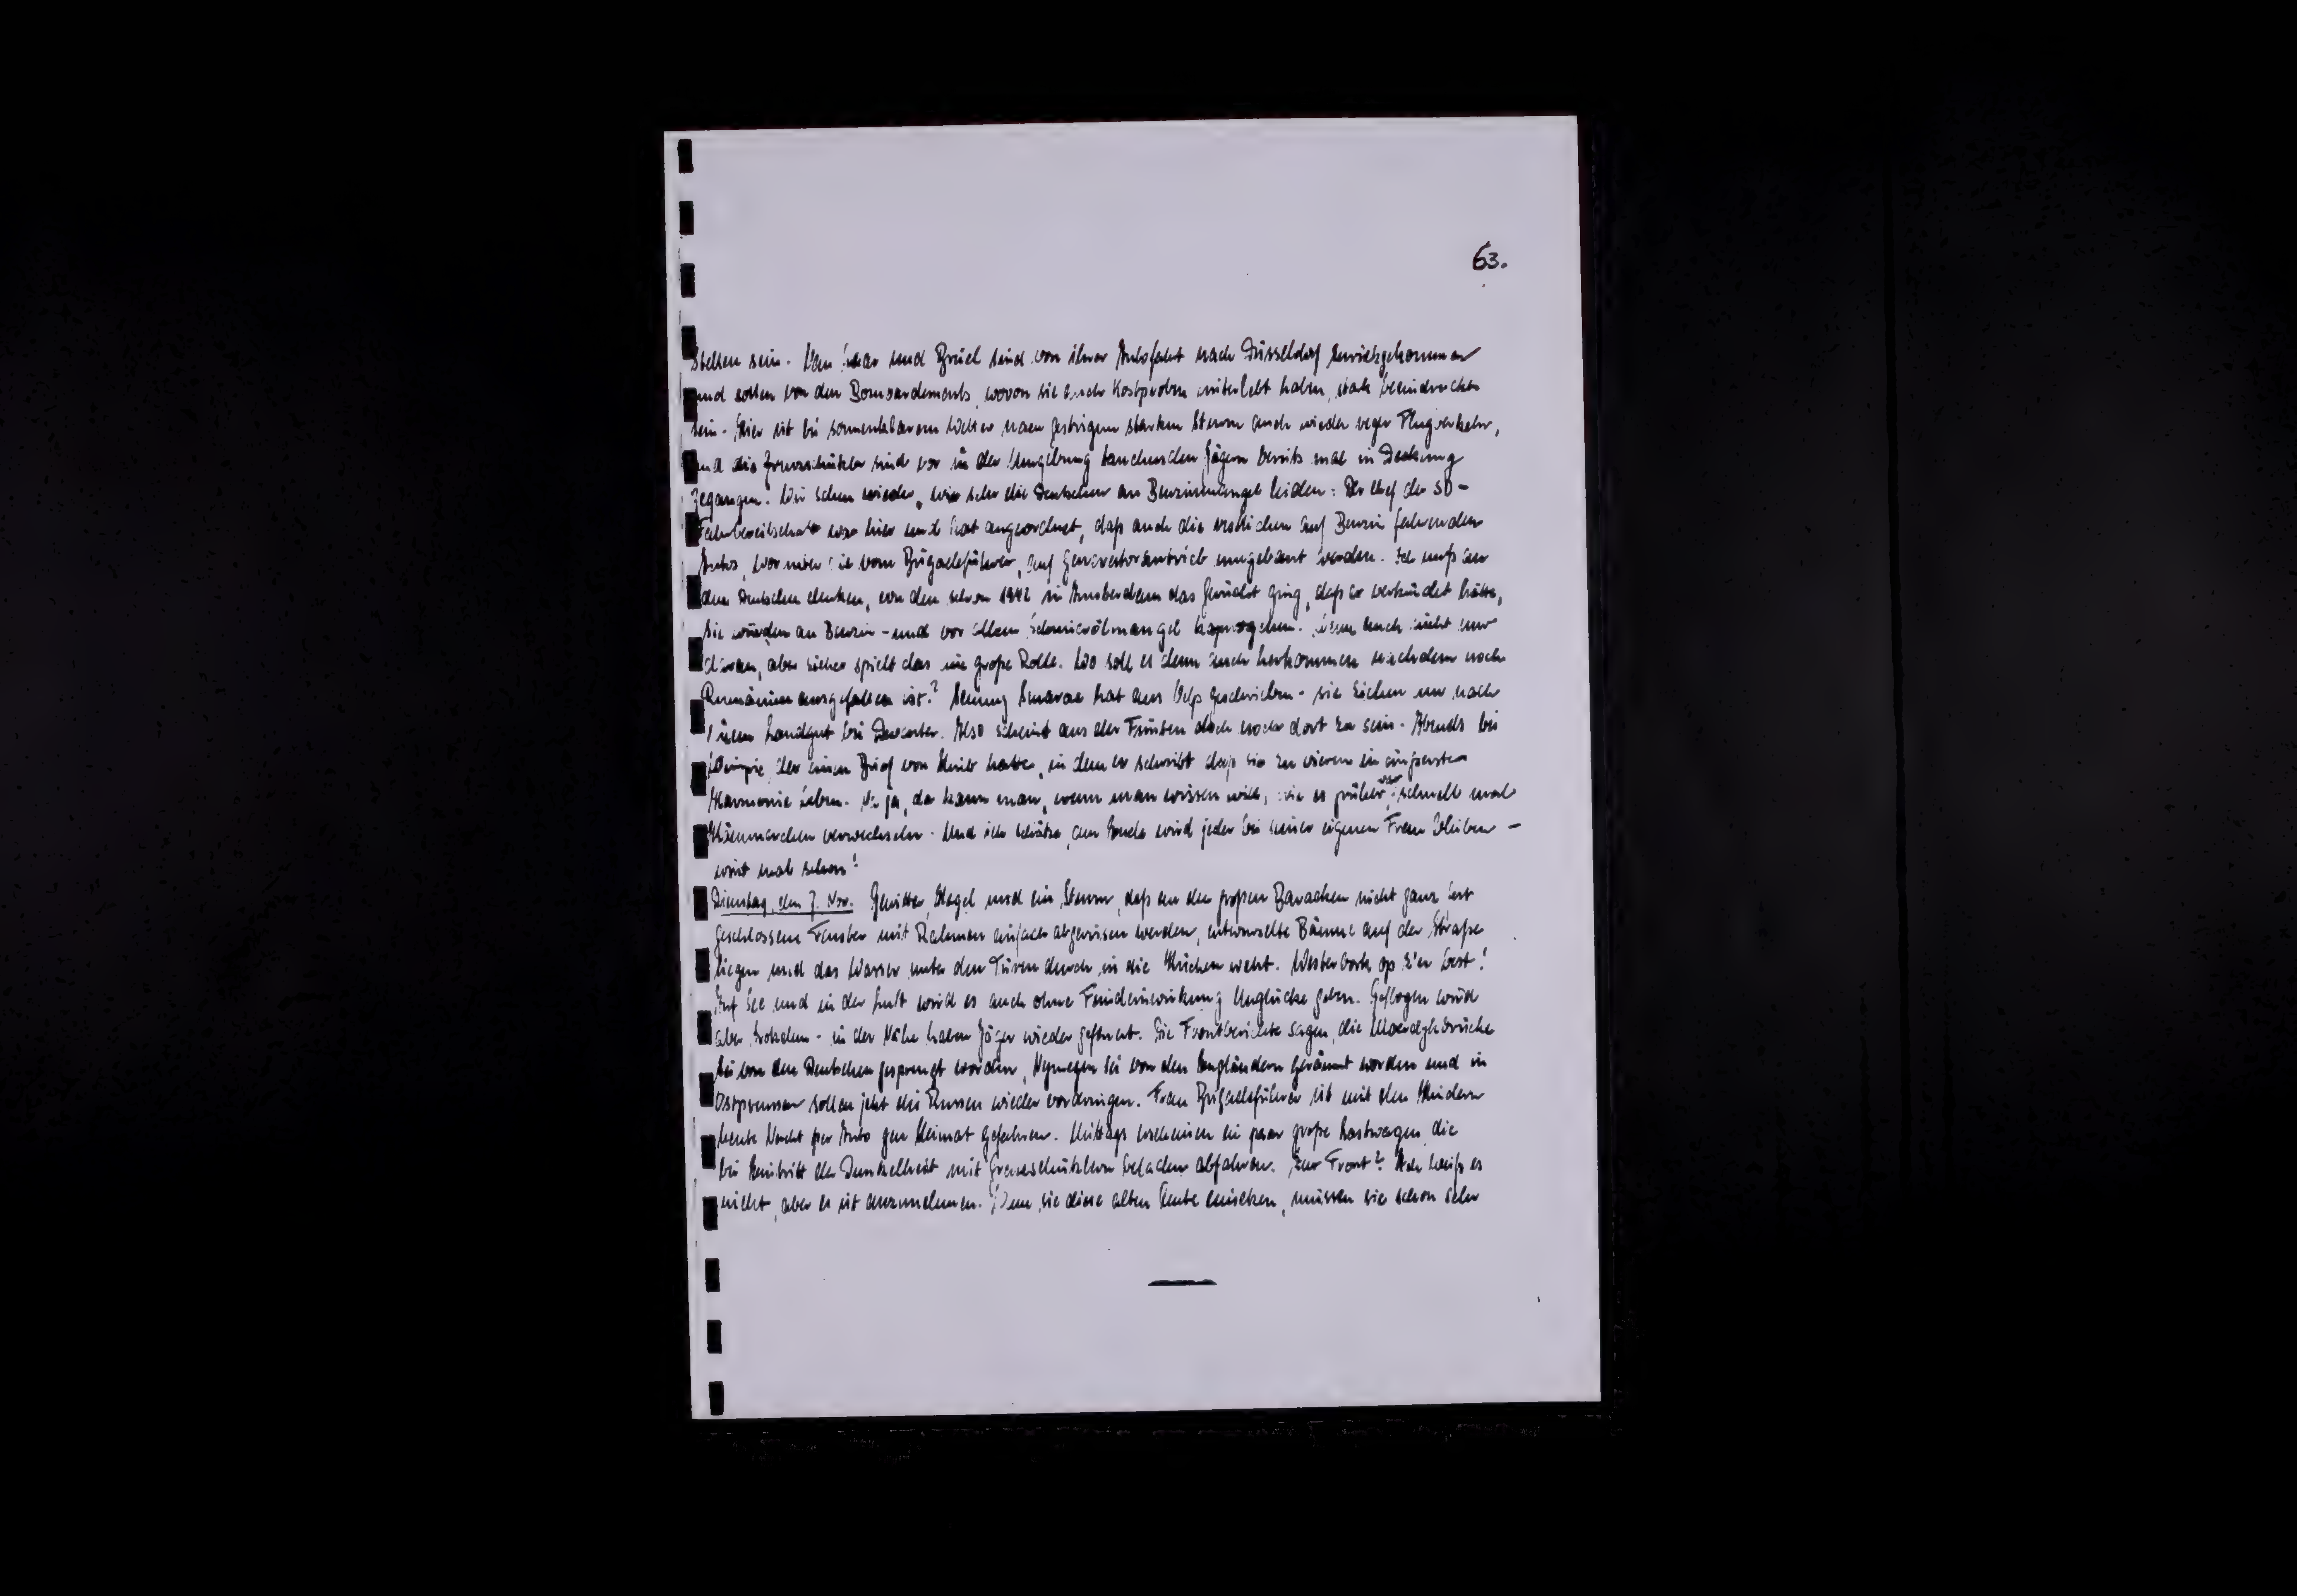 63.
stellen sein. Van und Brüel sind von ihrer Autofahrt nach Düsseldorf zurückgekommen
und sollen von den Bombardements, wovon sie auch Kostproben miterlebt haben, stark beeindruckt
sein. Hier ist bei sonnenklarem Wetter nach gestrigem starken Sturm auch wieder reger Flugverkehr,
und die Grenzschützler sind vor in der Umgebung tauchenden Jägern bereits mal in Deckung
gegangen. Wir sehen wieder, wie sehr die Deutschen an Benzinmangel leiden: Der Chef der SD-
Fahrbereitschaft war hier und hat angeordnet, daß auch die restlichen auf Benzin fahrenden
Autos, worunter die vom Brigadeführer, auf Generatorantrieb umgebaut werden. Ich muß an
den Deutschen denken, von dem schon 1942 in Amsterdam das Gerücht ging, daß er verkündet hätte,
sie würden an Benzin- und vor allem Schmierölmangel kaputtgehen. Wenn auch nicht nur
daran, aber sicher spielt das eine große Rolle. Wo soll es denn auch herkommen nachdem noch
Rumänien ausgefallen ist? hat aus Velp geschrieben - sie ziehen nur nach
ihrem Landgut bei Deventer. Also scheint aus der Fronten doch noch dort zu sein. Abends bei
Wimpie, der einen Brief von hatte, in dem er schreibt daß sie zu vieren in äußerster
Harmonie leben. Na ja, da kann man, wenn man wissen will, wie es früher war, schnell mal
verwechseln. Und ich schätze, am Ende wird jeder bei seiner eigenen Frau bleiben -
wart mal schon!
Dienstag, den 7. Nov. Gewitter, Hagel und ein Sturm, daß an den großen Baracken nicht ganz fest
geschlossene Fenster mit Rahmen einfach abgerissen werden, entwurzelte Bäume auf der Straße
liegen und das Wasser unter den Türen durch in die Küchen weht. Westerbork op z'n best!
Auf See und in der Luft wird es auch ohne Feindeinwirkung Unglücke geben. Geflogen wird
aber trotzdem - in der Nähe haben Jäger wieder gefeuert. Die Frontberichte sagen, die Moerdijkbrücke
sei von den Deutschen gesprengt worden, Nymegen sei von den Engländern geräumt worden und in
Ostpreussen sollen jetzt die Russen wieder vordringen. Frau Brigadeführer ist mit den Kindern
heute Nacht per Auto gen Heimat gefahren. Mittags erscheinen ein paar große Lastwagen, die
bei Eintritt der Dunkelheit mit Grenzschützlern beladen abfahren. Zur Front? Ich weiß es
nicht, aber es ist anzunehmen. Wenn sie diese alten Leute einsetzen, müssen sie schon sehr